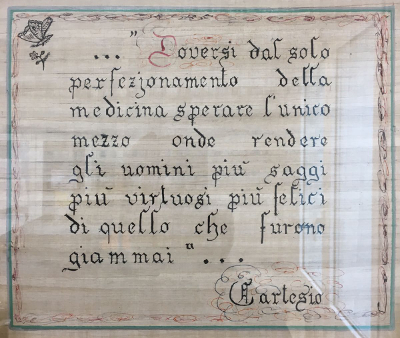 ..." Doversi dal solo
perfezjonamento della
medicina sperare l'unico
mezzo onde rendere
gli uomini più saggi
più virtuosi più felici
di quello che furono
giammai "...
Cartesio